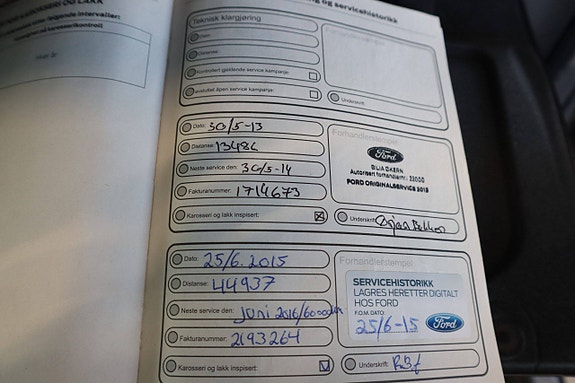 OG LAKK
Hvert år:
og servicehistorikk
Teknisk klargjøring
Dato:
Distanse:
Kontrollert gjeldende service kampanje:
service kampanje:
Underskrift:
Dato: 30/5-13
Distanse: 13486
Neste service den: 30/5-14
Fakturanummer: 1714673
Karosseri og lakk inspisert:
Forhandlerstempel
Ford
BILIA ØKERN
Autorisert forhandlernr: 32000
FORD ORIGINALSERVICE 2013
Underskrift:
Dato: 25/6.2015
Distanse: 44937
Neste service den: Juni 2016/60000km
Fakturanummer: 2193264
Karosseri og lakk inspisert:
Forhandlerstempel
SERVICEHISTORIKK
LAGRES HERETTER DIGITALT
HOS FORD
F.O.M. DATO:
25/6-15
Ford
Underskrift: